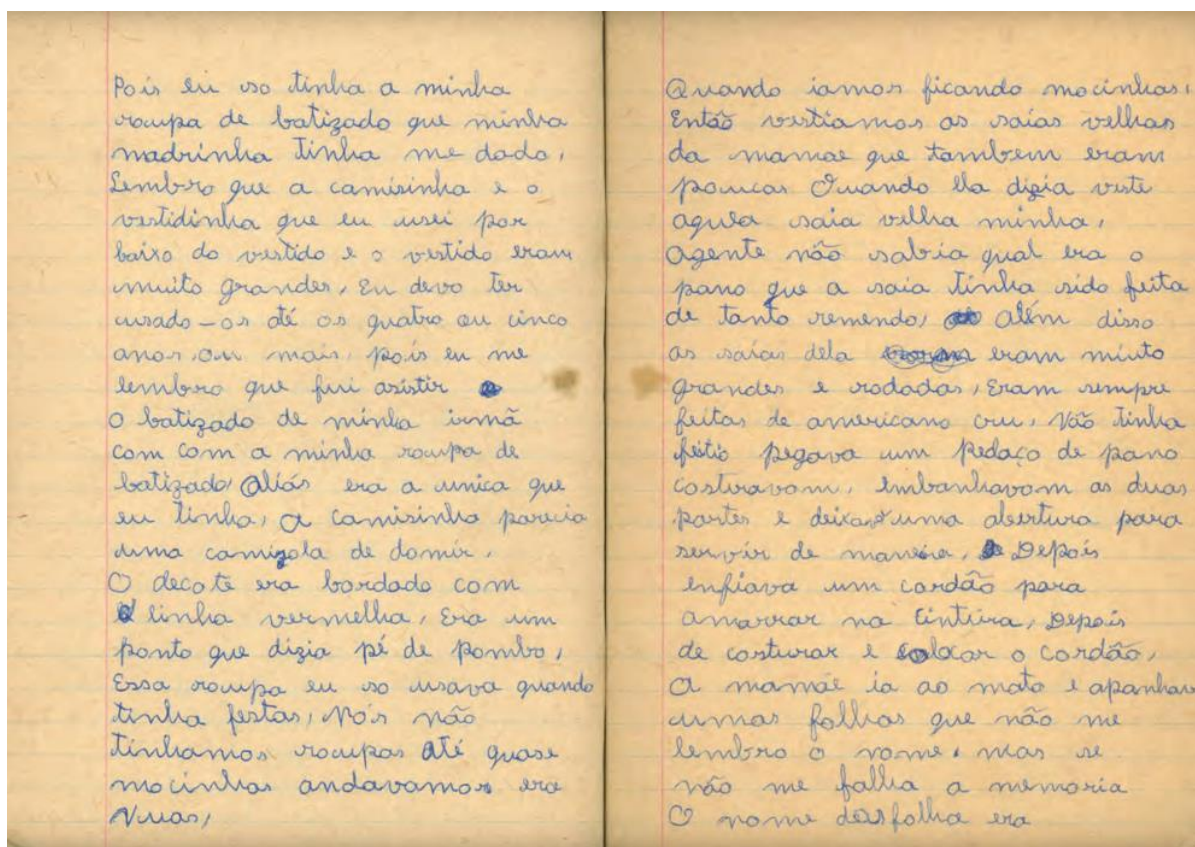 Pois eu so tinha a minha
roupa de batizado que minha
madrinha tinha me dado,
Lembro que a camisinha e o
vestidinha que eu usei por
baixo do vestido e o vestido eram
muito grandes, Eu devo ter
usado-os até os quatro ou cinco
anos, ou mais, pois eu me
lembro que fui asistir
O batizado de minha irmã
com com a minha roupa de
batizado, Aliás era a unica que
eu tinha, A camisinha parecia
uma camizola de domir.
O decote era bordado com
linha vermelha, Era um
ponto que dizia pé de pombo,
Essa roupa eu so usava quando
tinha festas, Nós não
tinhamos roupas Até quase
mocinhas andavamos era
Nuas,
Quando iamos ficando mocinhas,
Então vestiamos as saias velhas
da mamae que tambem eram
poucas Quando ela dizia viste
aquela saia velha minha,
Agente não sabia qual era o
pano que a saia tinha sido feita
de tanto remendo, Além disso
as saias dela eram miuto
grandes e rodadas, Eram sempre
feitas de americano cru, Não tinha
feitio pegava um Pedaço de pano
costuravam, Embanhavam as duas
partes e deixava uma abertura para
servir de maneira, Depois
enfiava um cordão para
amarrar na Cintura, Depois
de costurar e colocar o cordão,
A mamãe ia ao mato e apanhava
umas folhas que não me
lembro o nome, mas se
não me falha a memoria
O nome das folha era